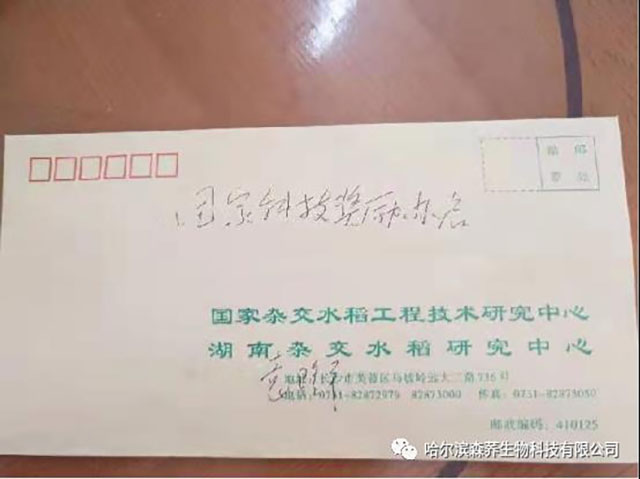 贴 邮
票 处
国家科技奖励办启
国家杂交水稻工程技术研究中心
湖南杂交水稻研究中心
袁隆平
地址:长沙市芙蓉区马坡岭远大二路736号
电话:0731-82872979 82873000 传真:0731-82873050
邮政编码:410125
哈尔滨森荞生物科技有限公司